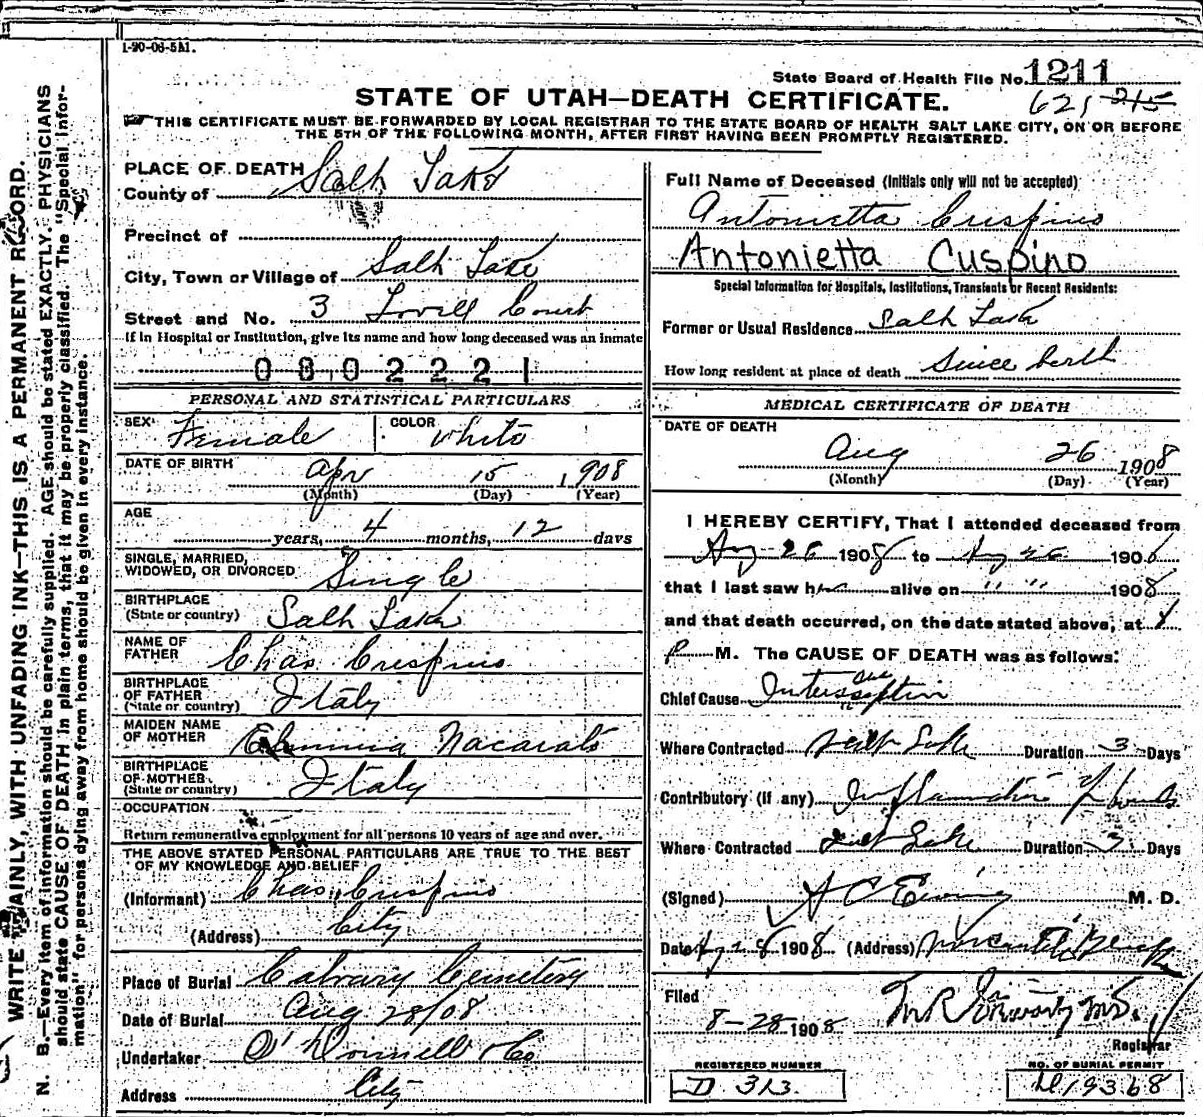 1-20-08-5M.
State Board of Health File No. 1211
STATE OF UTAH—DEATH CERTIFICATE. 621 215
THIS CERTIFICATE MUST BE FORWARDED BY LOCAL REGISTRAR TO THE STATE BOARD OF HEALTH SALT LAKE CITY, ON OR BEFORE
THE 5TH OF THE FOLLOWING MONTH, AFTER FIRST HAVING BEEN PROMPTLY REGISTERED.
WRITE PLAINLY, WITH UNFADING INK—THIS IS A PERMANENT RECORD.
N. B.—Every item of information should be carefully supplied. AGE should be stated EXACTLY. PHYSICIANS
should state CAUSE OF DEATH in plain terms, that it may be properly classified. The "Special Infor-
mation" for persons dying away from home should be given in every instance.
PLACE OF DEATH
County of Salt Lake
Precinct of
City, Town or Village of Salt Lake
Street and No. 3 Lovell Court
If in Hospital or Institution, give its name and how long deceased was an inmate
0802221
PERSONAL AND STATISTICAL PARTICULARS
SEX Female COLOR White
DATE OF BIRTH Apr 15 1908
(Month) (Day) (Year)
AGE
years, 4 months, 12 days
SINGLE, MARRIED,
WIDOWED, OR DIVORCED Single
BIRTHPLACE
(State or country) Salt Lake
NAME OF
FATHER Chas Crispino
BIRTHPLACE
OF FATHER
(State or country) Italy
MAIDEN NAME
OF MOTHER Nacarato
BIRTHPLACE
OF MOTHER
(State or country) Italy
OCCUPATION
Return remunerative employment for all persons 10 years of age and over.
THE ABOVE STATED PERSONAL PARTICULARS ARE TRUE TO THE BEST
OF MY KNOWLEDGE AND BELIEF
(Informant) Chas. Crispino
(Address) City
Place of Burial Calvary Cemetery
Date of Burial Aug 28/08
Undertaker O'Donnell & Co
Address City
Full Name of Deceased (Initials only will not be accepted)
Antonietta Crispino
Antonietta Cuspino
Special Information for Hospitals, Institutions, Transients or Recent Residents:
Former or Usual Residence Salt Lake
How long resident at place of death Since birth
MEDICAL CERTIFICATE OF DEATH
DATE OF DEATH
Aug 26 1908
(Month) (Day) (Year)
I HEREBY CERTIFY, That I attended deceased from
Aug 26 1908 to Aug 26 1908
that I last saw her alive on " " 1908
and that death occurred, on the date stated above, at 1
P M. The CAUSE OF DEATH was as follows:
Chief Cause
Where Contracted Salt Lake Duration 3 Days
Contributory (if any) Inflamation of bowels
Where Contracted Salt Lake Duration 3 Days
(Signed) A C Ewing M. D.
Date Aug 28 1908 (Address)
Filed
8-28-1908
Registrar
REGISTERED NUMBER
D 313
NO. OF BURIAL PERMIT
19368